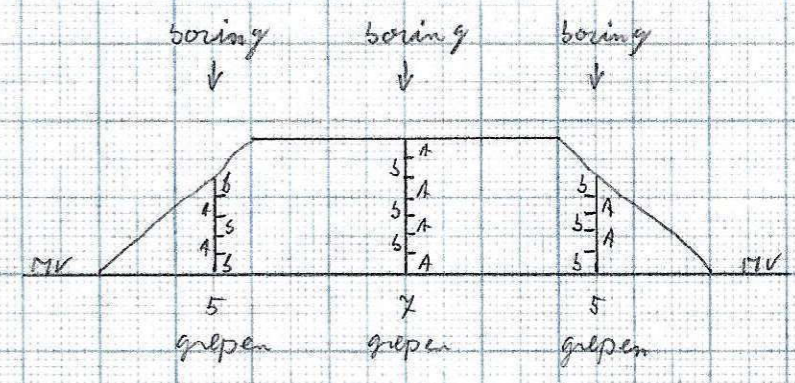 boring boring boring
A
b
b A b
A b A
b A b
A b A
MV b A b MV
5 7 5
grepen grepen grepen